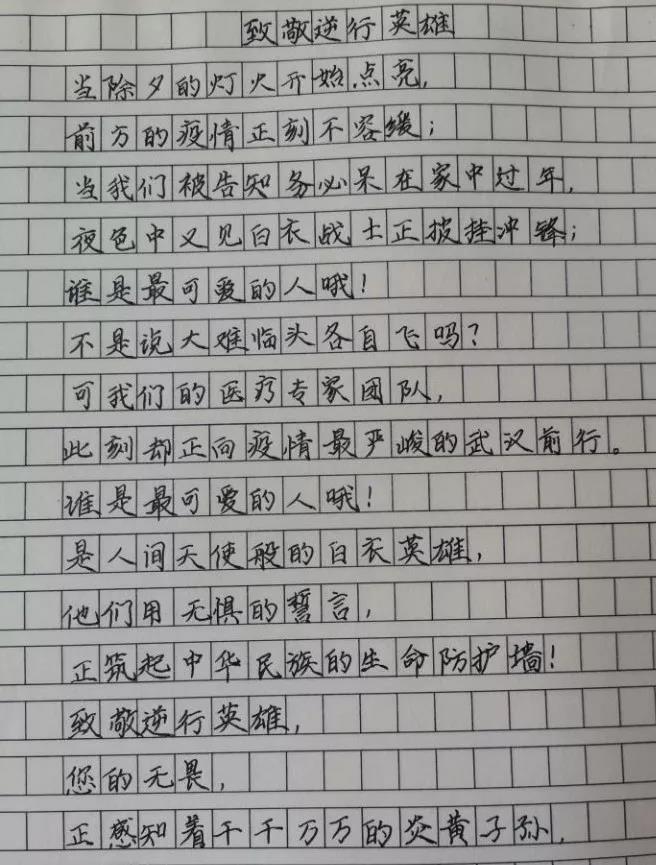 致敬逆行英雄
当除夕的灯火开始点亮,
前方的疫情正刻不容缓;
当我们被告知务必呆在家中过年,
夜色中又见白衣战士正披挂冲锋;
谁是最可爱的人哦!
不是说大难临头各自飞吗?
可我们的医疗专家团队,
此刻却正向疫情最严峻的武汉前行。
谁是最可爱的人哦!
是人间天使般的白衣英雄,
他们用无惧的誓言,
正筑起中华民族的生命防护墙!
致敬逆行英雄,
您的无畏,
正感知着千千万万的炎黄子孙,